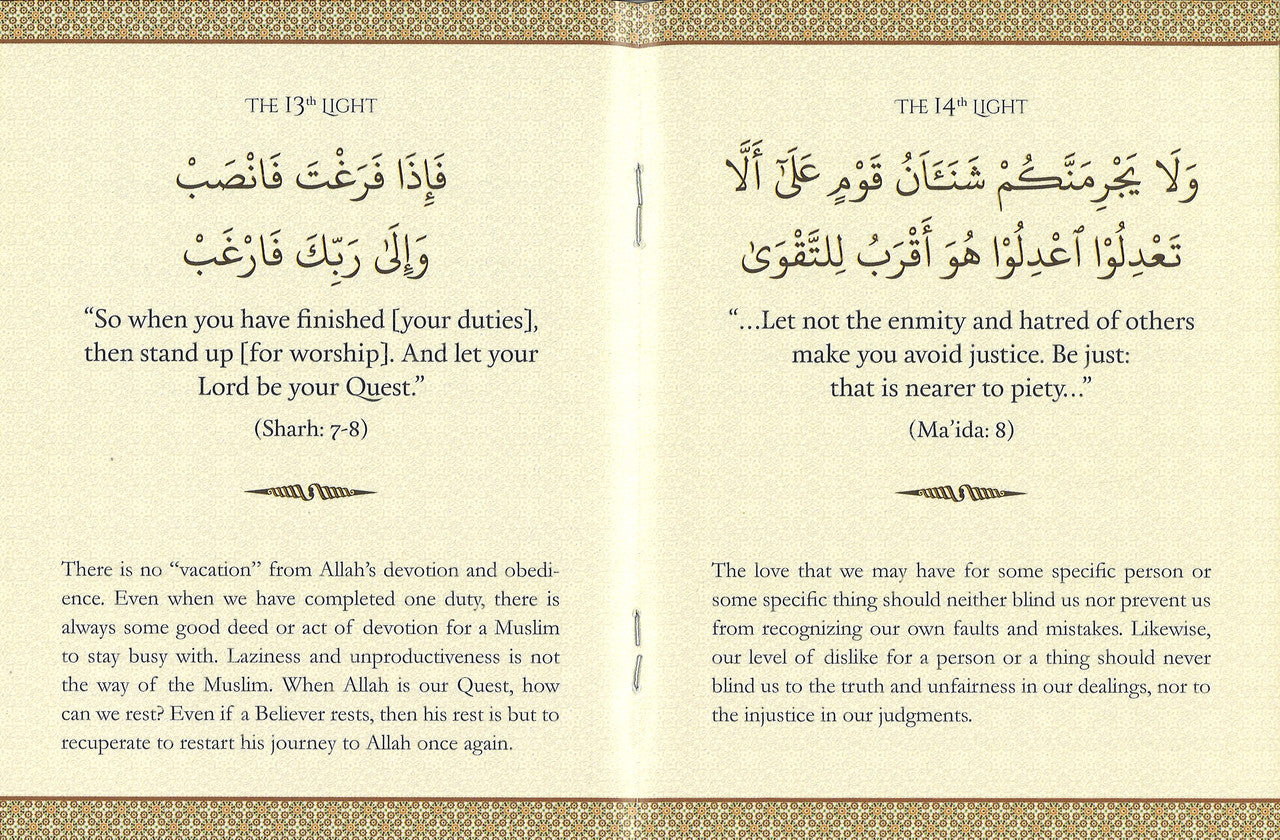 THE 13th LIGHT
فَإِذَا فَرَغْتَ فَانْصَبْ
وَإِلَىٰ رَبِّكَ فَارْغَبْ
“So when you have finished [your duties],
then stand up [for worship]. And let your
Lord be your Quest.”
(Sharh: 7-8)
There is no “vacation” from Allah’s devotion and obedi-
ence. Even when we have completed one duty, there is
always some good deed or act of devotion for a Muslim
to stay busy with. Laziness and unproductiveness is not
the way of the Muslim. When Allah is our Quest, how
can we rest? Even if a Believer rests, then his rest is but to
recuperate to restart his journey to Allah once again.
THE 14th LIGHT
وَلَا يَجْرِمَنَّكُمْ شَنَـَٔانُ قَوْمٍ عَلَىٰٓ أَلَّا
تَعْدِلُوْا ٱعْدِلُوْا هُوَ أَقْرَبُ لِلتَّقْوَىٰ
“…Let not the enmity and hatred of others
make you avoid justice. Be just:
that is nearer to piety…”
(Ma’ida: 8)
The love that we may have for some specific person or
some specific thing should neither blind us nor prevent us
from recognizing our own faults and mistakes. Likewise,
our level of dislike for a person or a thing should never
blind us to the truth and unfairness in our dealings, nor to
the injustice in our judgments.